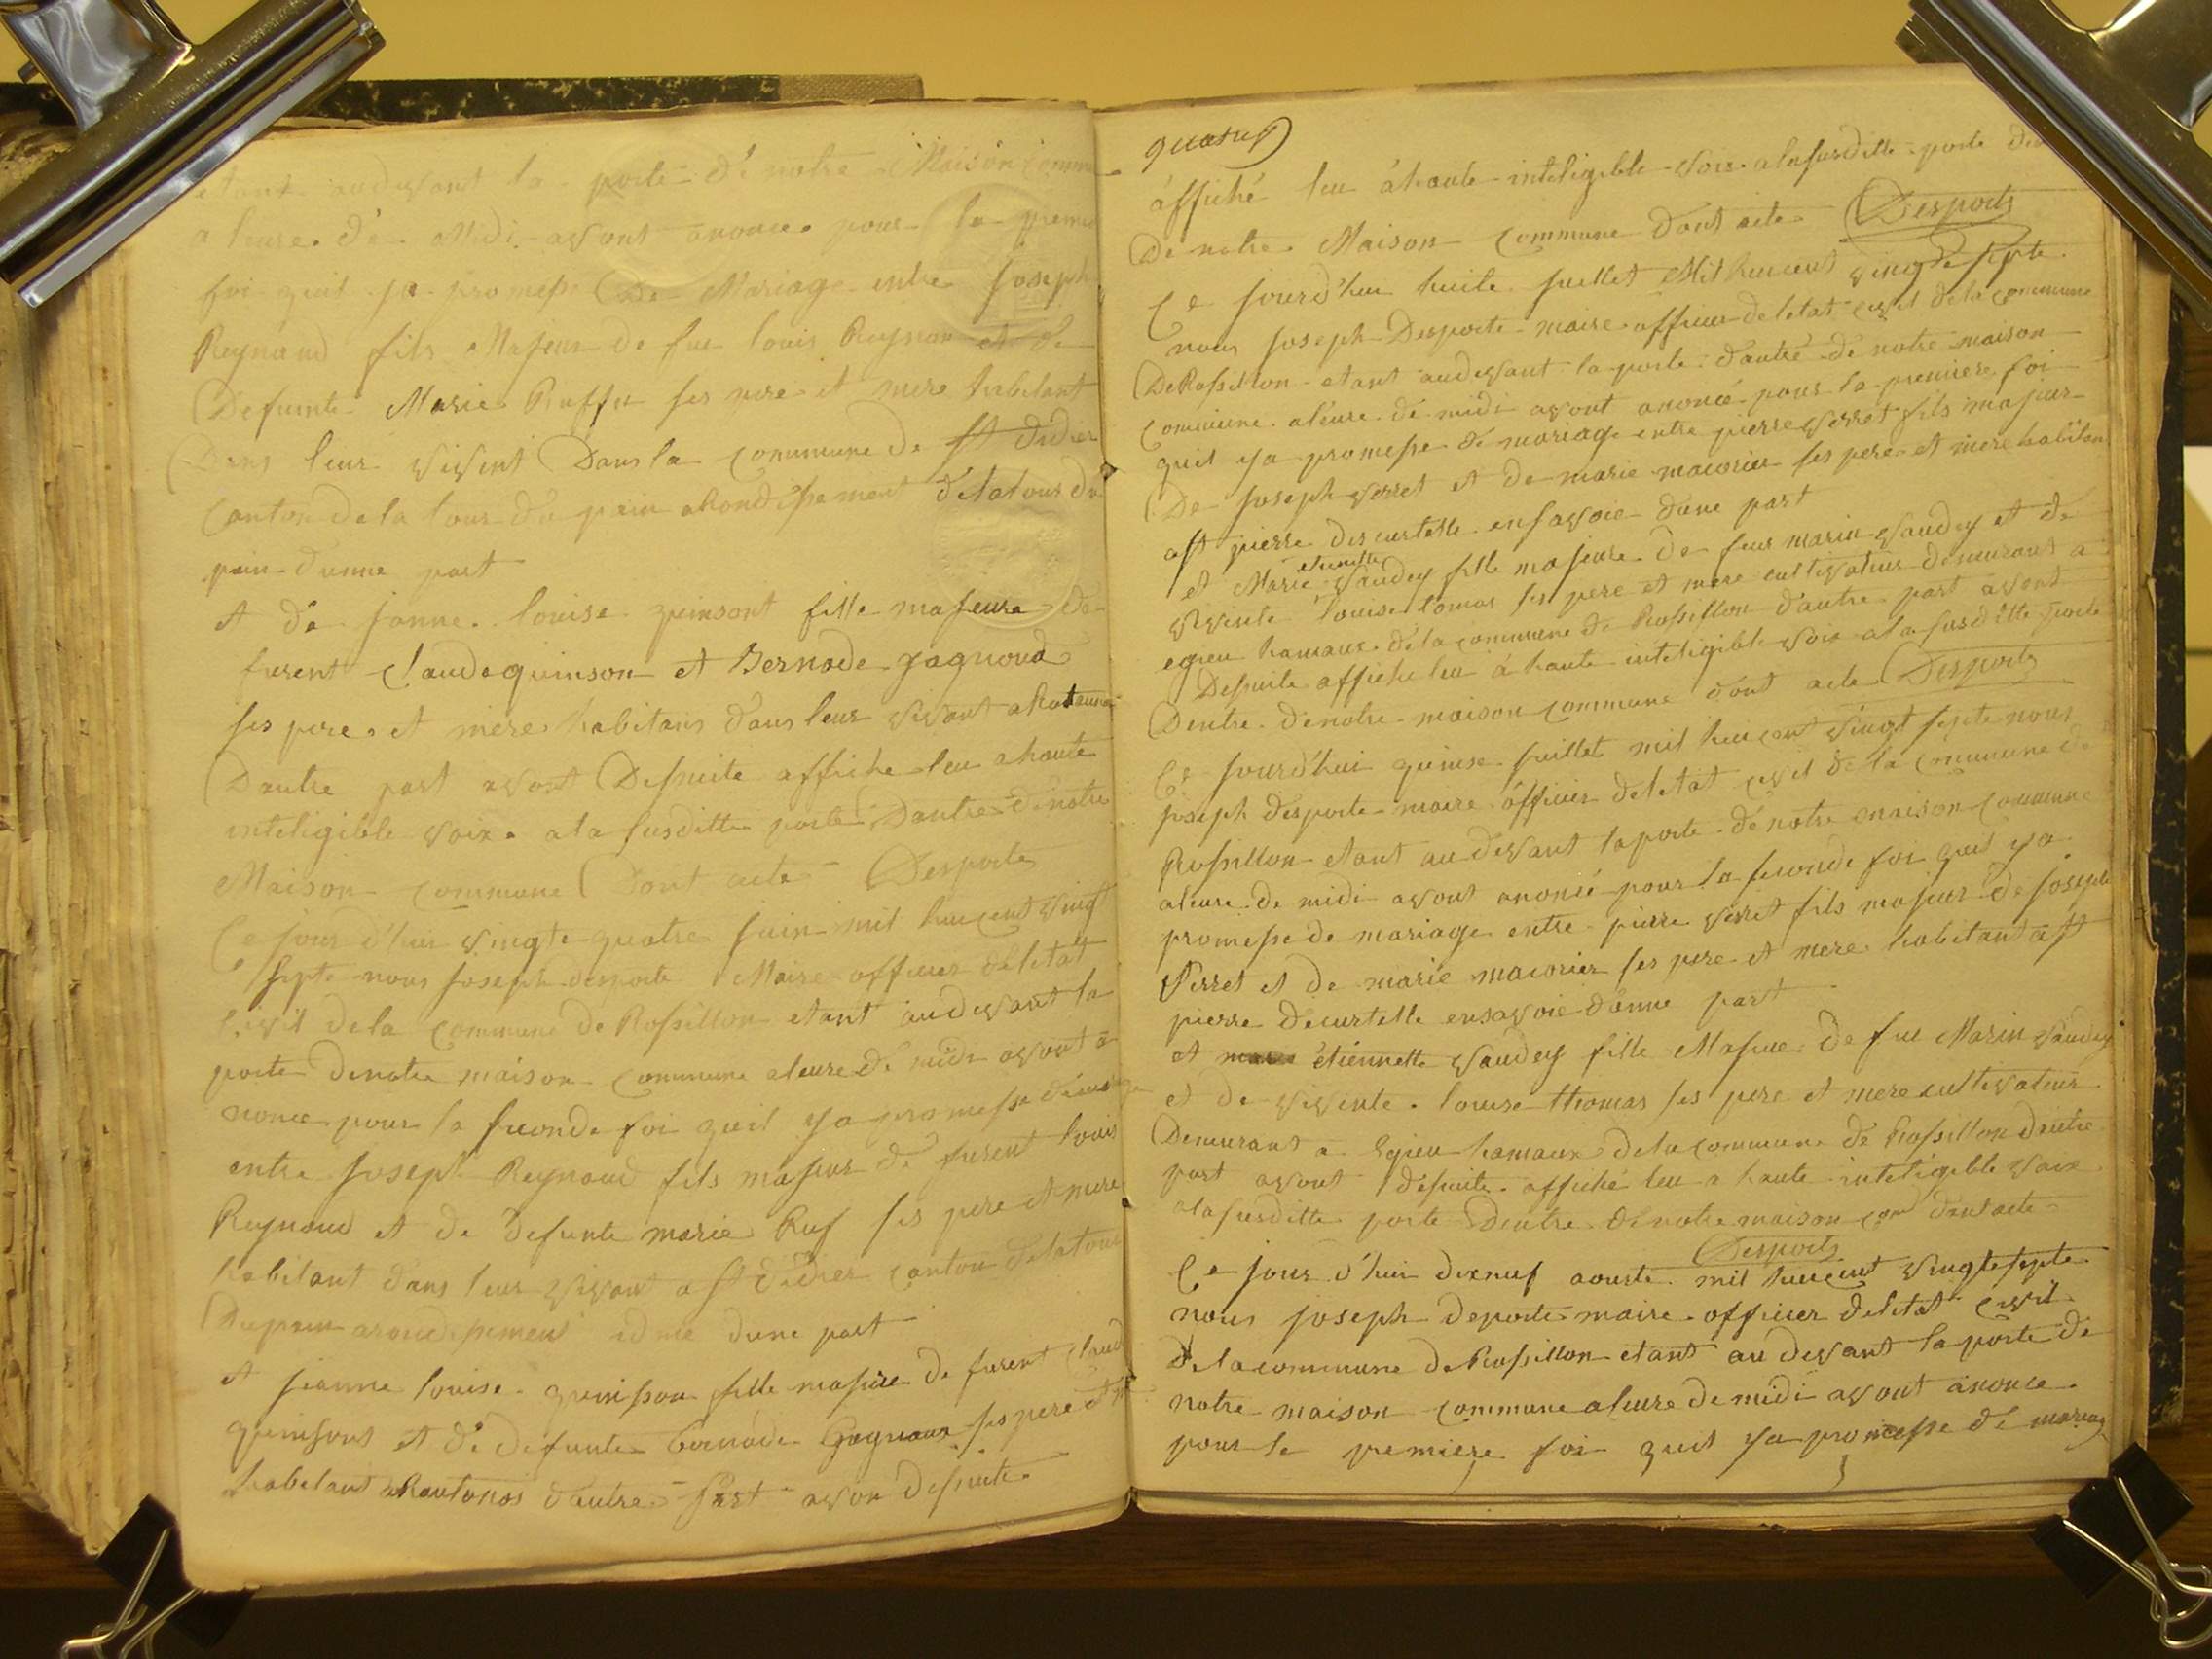 etant au devant la porte de notre Maison Comm
a leure de Midi avont anonce pour la premi
foi quil ya promesse De Mariage entre Joseph
Reynaud fils Majeur de fue louis Reynau et de
Defunte Marie Ruffu ses pere et mere habitant
Dans leur vivent Dans la commune de St didier
Canton de la tour du pain arondissement de latour du
pain dunne part
et de janne louise quinsont fille majeure de
furent Claude quinson et Bernade gagnoud
ses pere et mere habitans dans leur vivant a
Dautre part avont Desuite affiche leu a haute
inteligible voix a la susditte porte Dantre de notre
Maison commune Dont acte Desporte
Ce jour d'hui vingte quatre juin mil huicent vingt
septe nous joseph desporte Maire officier de letat
Civil dela commune de Rossillon etant au devant la
porte denotre maison commune aleure de midi avont a
nonce pour la seconde foi quil ya promesse de
entre joseph Reynaud fils majeur de furent louis
Reynaud et de defunte marie Ruf ses pere et mere
habitant dans leur vivant a st didier canton de latour
Dupain arondissement id me dune part
et jeanne louise quinsson fille majeure de furent Claud
quinsont et de defunte bernade Gagnoux ses pere et m
habitant a Rautonos dautre Part avon desuite
quatre
affiché leu à haute inteligible voix a la susditte porte den
De notre Maison Commune dont acte Desporte
Ce jourd'hui huite juillet Mil huicent vingte septe
nous joseph Desporte maire officier de letat civil de la commune
De Rossillon etant au devant la porte dantre de notre maison
Commune aleure de midi avont anoncé pour la premiere foi
quil ya promesse de mariage entre pierre verret fils majeur
De joseph verret et de marie macorier ses pere et mere habiton
a st pierre de curtelle en savoie dune part
etienette
et Marie vaudey fille majeure de feue marin vaudey et de
vivente louise tomas ses pere et mere cultivateur demeurant a
egieu hamaux de la commune de Rossillon dautre part avont
Desuite affiche leu à haute inteligible voix a la susditte porte
Dentre de notre maison commune dont acte Desporte
Ce jourd'hui quinse juillet mil huicent vingt septe nous
joseph desporte maire officier de letat civil de la commune de
Rossillon etant au devant la porte de notre maison commune
aleure de midi avont anoncé pour la seconde foi quil ya
promesse de mariage entre pierre verret fils majeur de joseph
Verret et de marie macorier ses pere et mere habitant a st
pierre de curtelle en savoie dunne part
et etiennette vaudey fille Majeue de fue Marin vaudey
et de vivente louise thomas ses pere et mere cultivateur
Demeurant a Egieu hamaux de la commune de Rossillon dautre
part avont desuite affiché leu a haute inteligible voix
a la susditte porte Dentre de notre maison com dont acte
Desporte
Ce jour d'hui dixneuf aouste mil huicent vingte septe
nous joseph deporte maire officier de letat civil
de la commune de Rossillon etant au devant la porte de
notre maison commune aleure de midi avont anonce
pour la premiere foi quil ya promesse de mariag